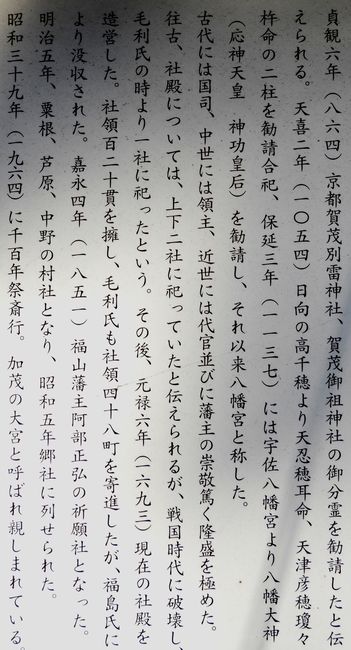 貞観六年（八六四）京都賀茂別雷神社、賀茂御祖神社の御分霊を勧請したと伝
えられる。天喜二年（一〇五四）日向の高千穂より天忍穂耳命、天津彦穂瓊々
杵命の二柱を勧請合祀、保延三年（一一三七）には宇佐八幡宮より八幡大神
（応神天皇　神功皇后）を勧請し、それ以来八幡宮と称した。
古代には国司、中世には領主、近世には代官並びに藩主の崇敬篤く隆盛を極めた。
往古、社殿については、上下二社に祀っていたと伝えられるが、戦国時代に破壊し、
毛利氏の時より一社に祀ったという。その後、元禄六年（一六九三）現在の社殿を
造営した。社領百二十貫を擁し、毛利氏も社領四十八町を寄進したが、福島氏に
より没収された。嘉永四年（一八五一）福山藩主阿部正弘の祈願社となった。
明治五年、粟根、芦原、中野の村社となり、昭和五年郷社に列せられた。
昭和三十九年（一九六四）に千百年祭斎行。加茂の大宮と呼ばれ親しまれている。